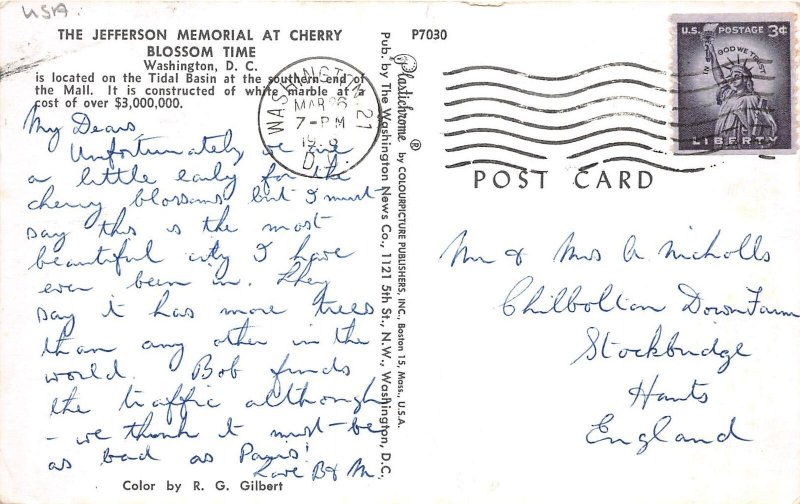 USA
THE JEFFERSON MEMORIAL AT CHERRY
BLOSSOM TIME
Washington, D. C.
is located on the Tidal Basin at the southern end of
the Mall. It is constructed of white marble at a
cost of over $3,000,000.
My Dears,
Unfortunately we are
a little early for the
cherry blossoms but I must
say this is the most
beautiful city I have
ever been in. They
say it has more trees
than any other in the
world. Bob finds
the traffic although
- we think it must - be
as bad as Paris!
Love B & M.
Color by R. G. Gilbert
P7030
Plastichrome ® by COLOURPICTURE PUBLISHERS, INC., Boston 15, Mass., U.S.A.
Pub. by The Washington News Co., 1121 5th St., N.W., Washington, D.C.
WASHINGTON 21
MAR 26
7-PM
D.C.
U.S. POSTAGE 3¢
IN GOD WE TRUST
LIBERTY
POST CARD
Mr & Mrs A. Nicholls
Chilbolton Down Farm
Stockbridge
Hants
England